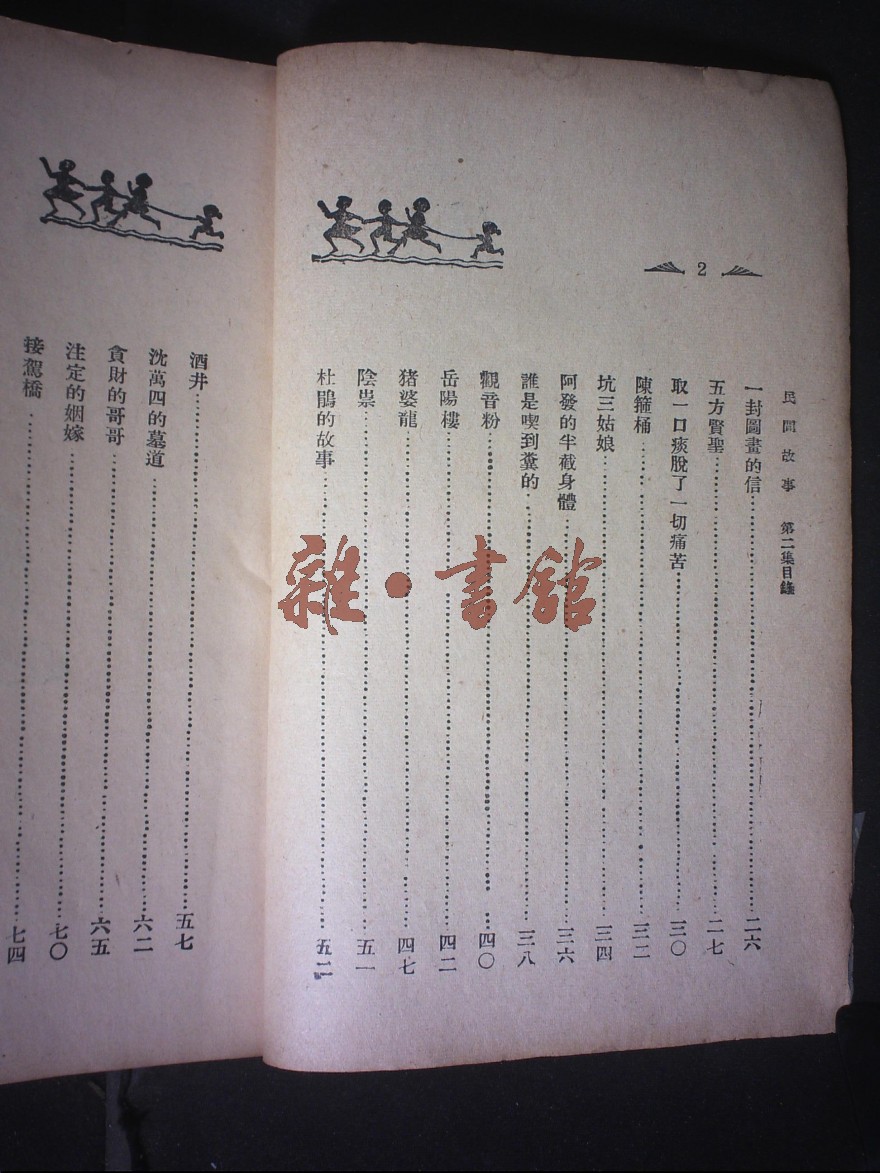 2
民間故事 第二集目錄
一封圖畫的信……二六
五方賢聖……二七
取一口痰脫了一切痛苦……三〇
陳箍桶……三二
坑三姑娘……三四
阿發的半截身體……三六
誰是喫到糞的……三八
觀音粉……四〇
岳陽樓……四二
猪婆龍……四七
陰祟……五一
杜鵑的故事……五二
酒井……五七
沈萬四的墓道……六二
貪財的哥哥……六五
注定的姻嫁……七〇
接駕橋……七四
雜·書館